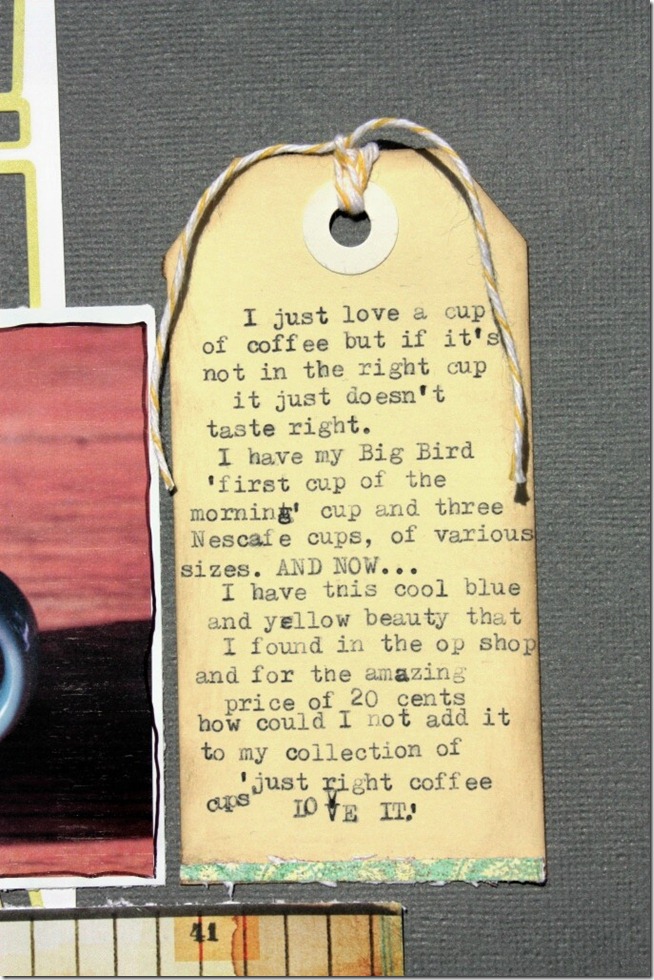 I just love a cup
of coffee but if it's
not in the right cup
it just doesn't
taste right.
I have my Big Bird
'first cup of the
morning' cup and three
Nescafe cups, of various
sizes. AND NOW...
I have this cool blue
and yellow beauty that
I found in the op shop
and for the amazing
price of 20 cents
how could I not add it
to my collection of
'just right coffee
cups' LOVE IT.'
41